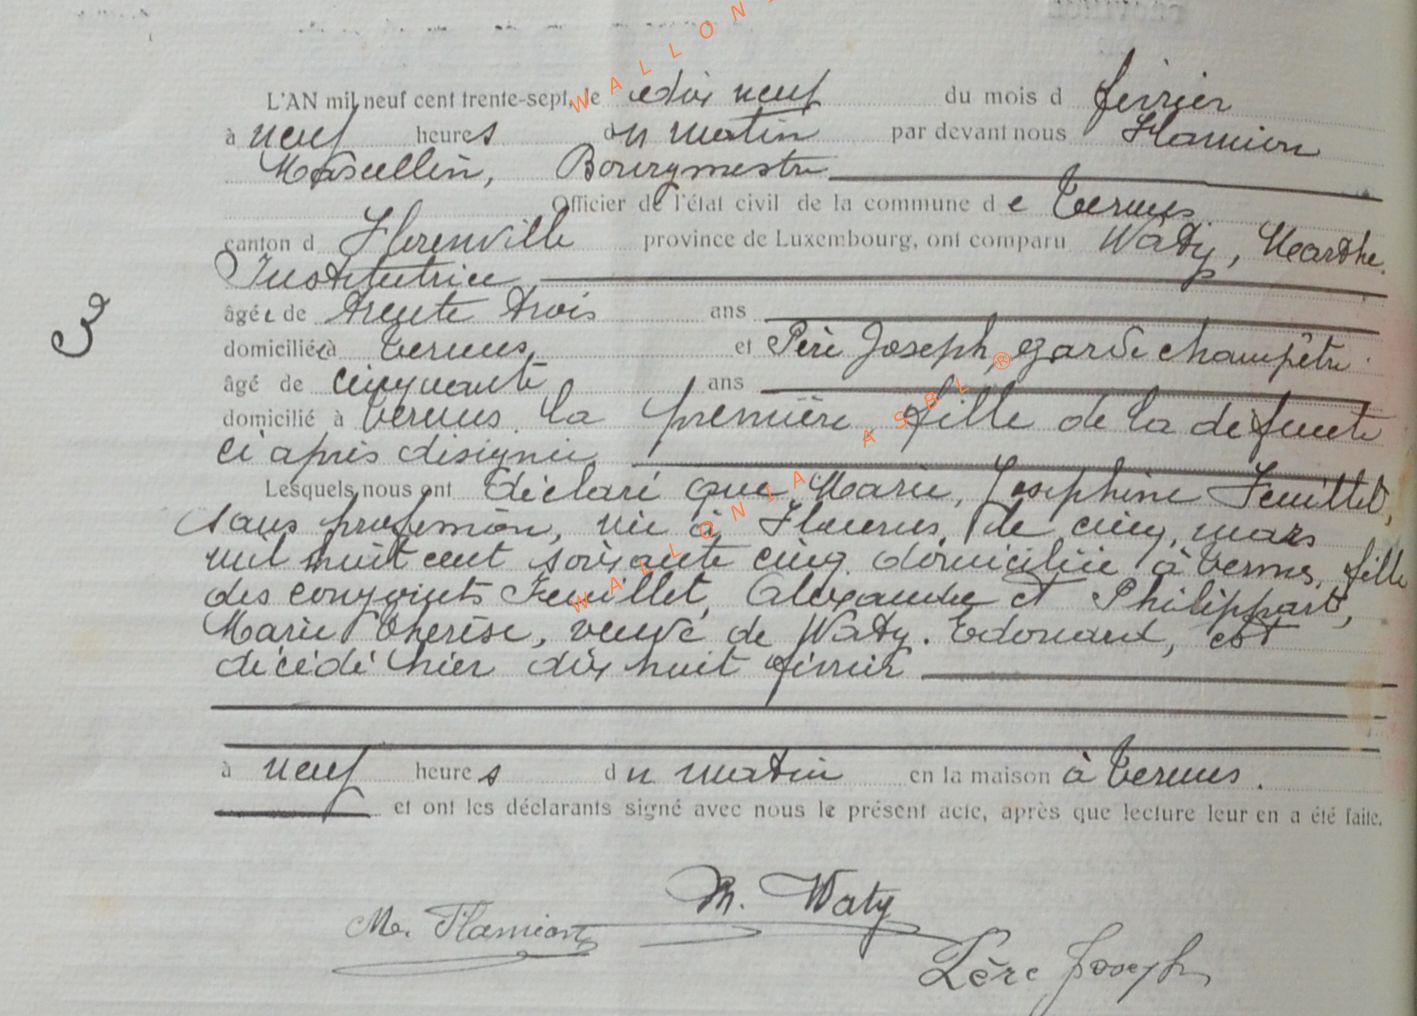 L'AN mil neuf cent trente-sept, le dix neuf du mois d février
à neuf heures du matin par devant nous Flamion
Marcellin, Bourgmestre
Officier de l'état civil de la commune de Termes
canton d Florenville province de Luxembourg, ont comparu Waty, Marthe.
Institutrice
âgée de trente trois ans
domiciliée à Termes, et Père Joseph, garde champêtre
âgé de cinquante ans
domicilié à Termes. la première, fille de la défunte
ci après désignée
Lesquels nous ont déclaré que Marie, Joséphine Feuillet,
sans profession, née à le cinq, mars
mil huit cent soixante cinq. domiciliée à Termes, fille
des conjoints Feuillet, Alexandre et Philippart,
Marie Thérèse, veuve de Waty. Edouard, est
décédé hier dix huit février
à neuf heures du matin en la maison à Termes.
et ont les déclarants signé avec nous le présent acte, après que lecture leur en a été faite.
3
M. Waty
Mr. Flamion
Père Joseph
WALLONIA ASBL ®
WALLON